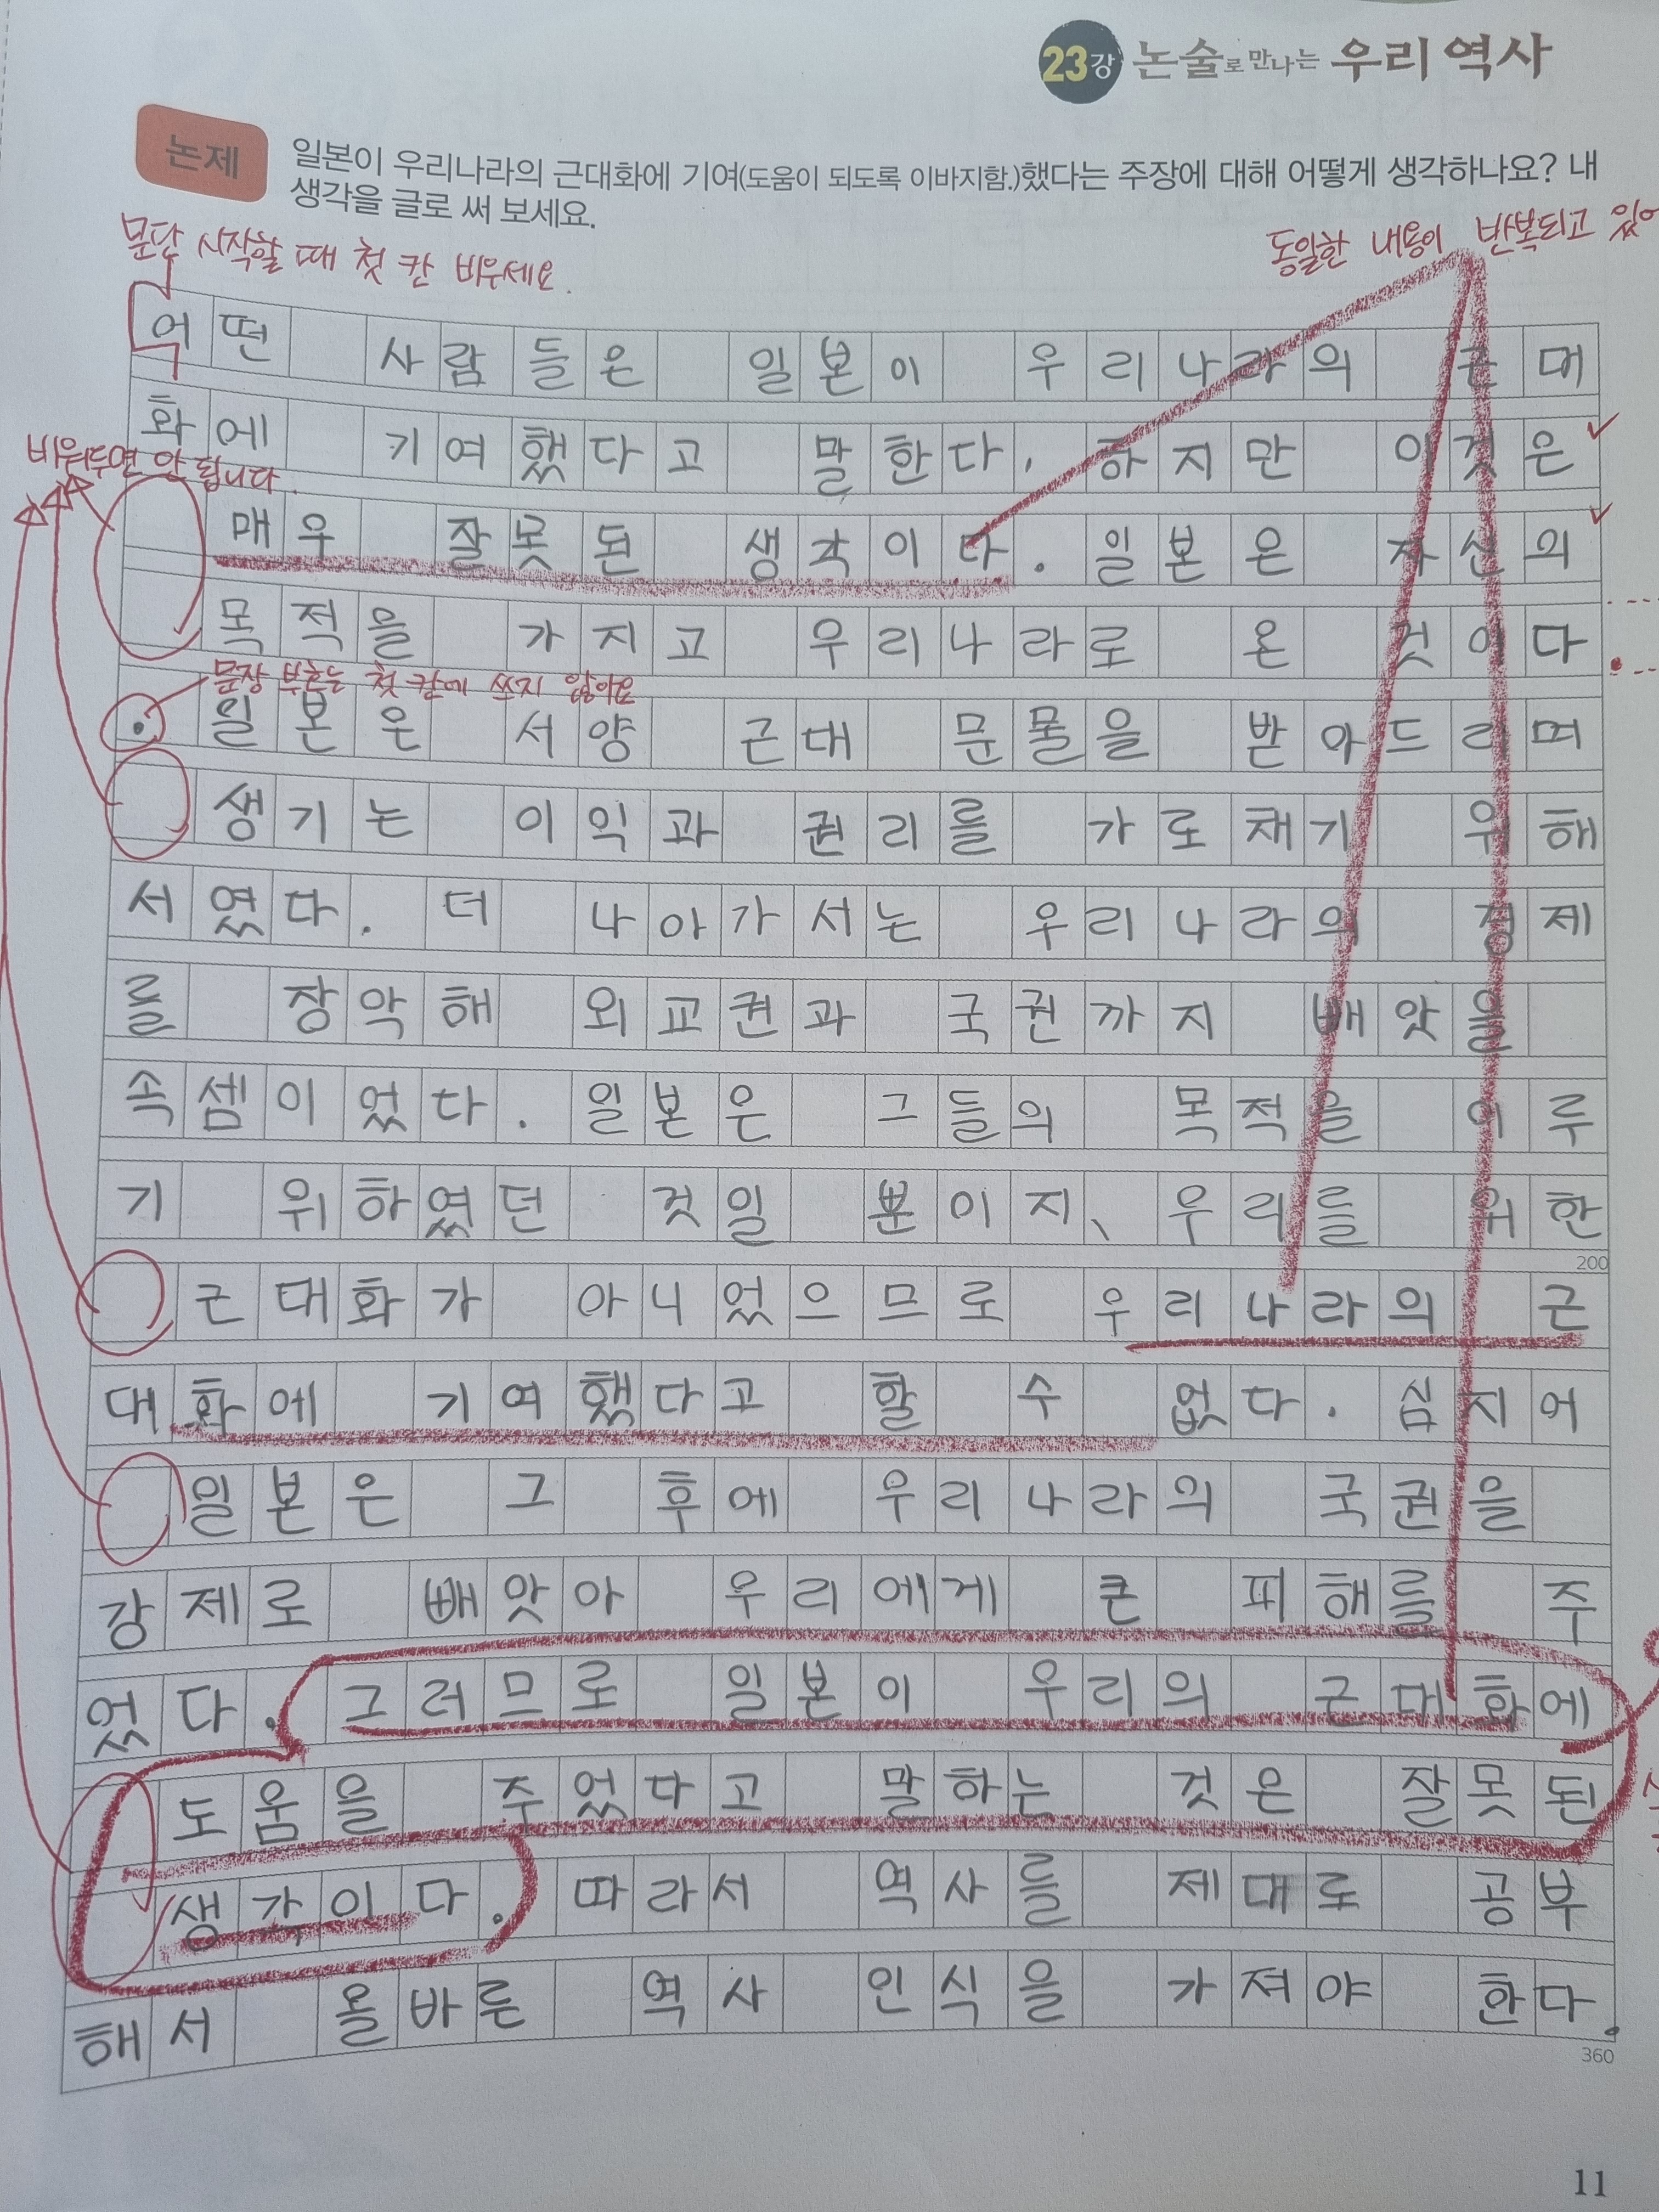 23강 논술로 만나는 우리 역사
논제
일본이 우리나라의 근대화에 기여(도움이 되도록 이바지함.)했다는 주장에 대해 어떻게 생각하나요? 내
생각을 글로 써 보세요.
문단 시작할 때 첫 칸 비우세요.
동일한 내용이 반복되고 있어
어떤 사람들은 일본이 우리나라의 근대
화에 기여했다고 말한다. 하지만 이것은
비워두면 안 됩니다.
매우 잘못된 생각이다. 일본은 자신의
목적을 가지고 우리나라로 온 것이다
문장 부호는 첫 칸에 쓰지 않아요
. 일본은 서양 근대 문물을 받아드리며
생기는 이익과 권리를 가로채기 위해
서였다. 더 나아가서는 우리나라의 경제
를 장악해 외교권과 국권까지 빼앗을
속셈이었다. 일본은 그들의 목적을 이루
기 위하였던 것일 뿐이지, 우리를 위한
200
근대화가 아니었으므로 우리나라의 근
대화에 기여했다고 할 수 없다. 심지어
일본은 그 후에 우리나라의 국권을
강제로 빼앗아 우리에게 큰 피해를 주
었다. 그러므로 일본이 우리의 근대화에
도움을 주었다고 말하는 것은 잘못된
생각이다. 따라서 역사를 제대로 공부
해서 올바른 역사 인식을 가져야 한다.
360
11